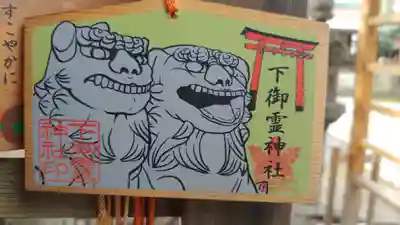 すこやかに
下御霊神社
下御霊
神社印